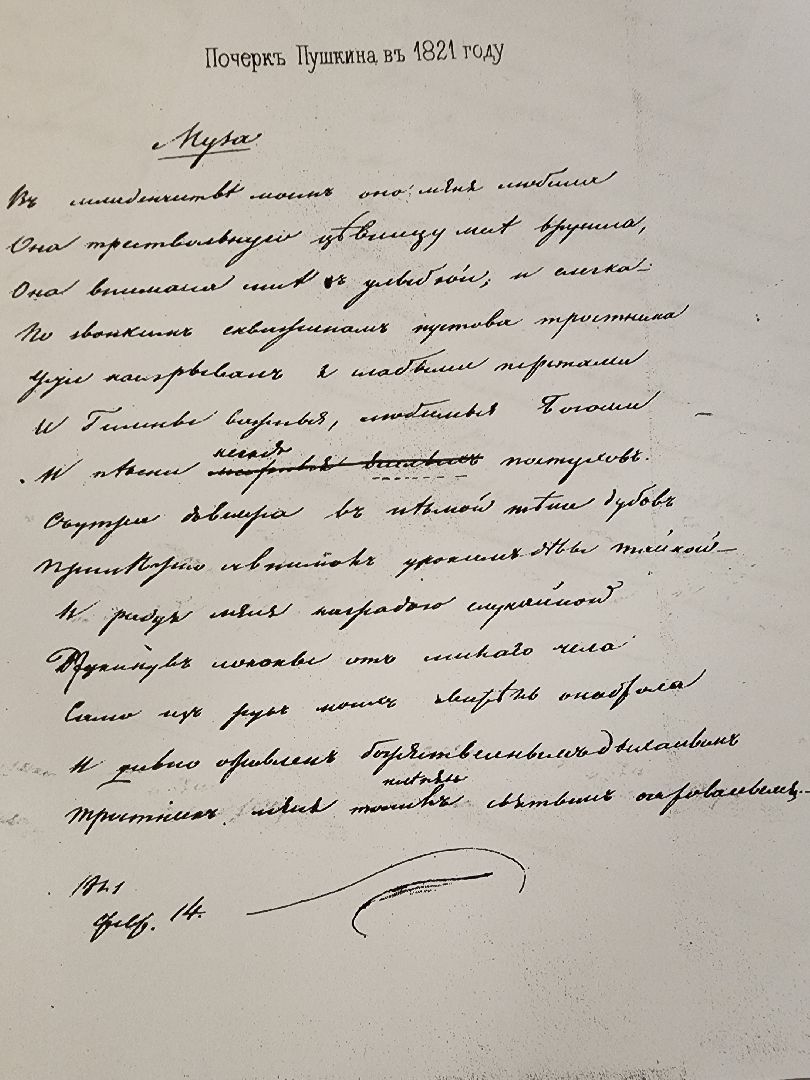 Почеркъ Пушкина въ 1821 году
Муза
Въ младенчествѣ моемъ она меня любила
Она тростольную цѣвницу мнѣ вручила,
Она внимала мнѣ съ улыбкой; и слегка—
По звонкимъ скважинамъ пустова тростника
Ужъ наигрывалъ я слабыми перстами
И Гимны важные, любимые Богами —
И пѣсни
пастуховъ.
Съутра до вечера въ нѣмой тѣни дубовъ
Прилѣжно я внималъ урокамъ дѣвы тайной—
И радуя меня наградою случайной
Откинувъ локоны отъ милаго чела
Сама изъ рукъ моихъ свирѣль она брала
И дивно оживленъ божественнымъ дыханьемъ
Тростникъ меня святымъ очарованьемъ..
1821
февр. 14.